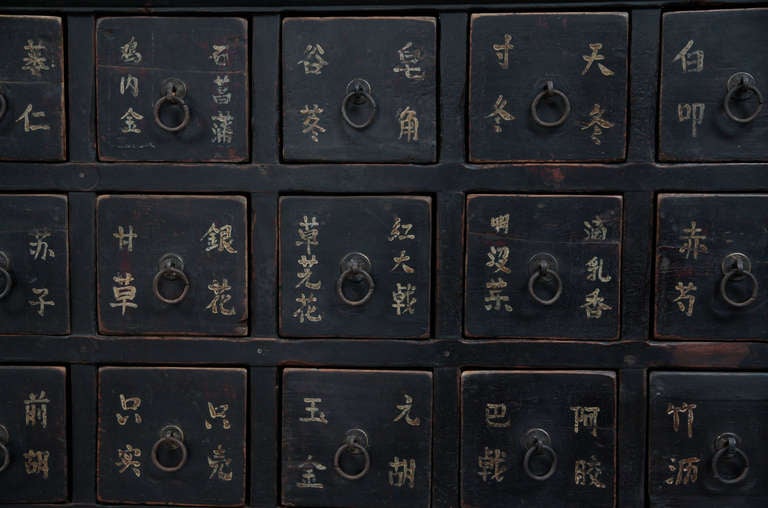 蒌仁
石菖蒲
鸡内金
皂角
谷苓
天冬
寸冬
白
叩
苏子
銀花
甘草
紅大戟
草芫花
滴乳香
明没茶
赤芍
前胡
只壳
只实
元胡
玉金
阿胶
巴戟
竹沥